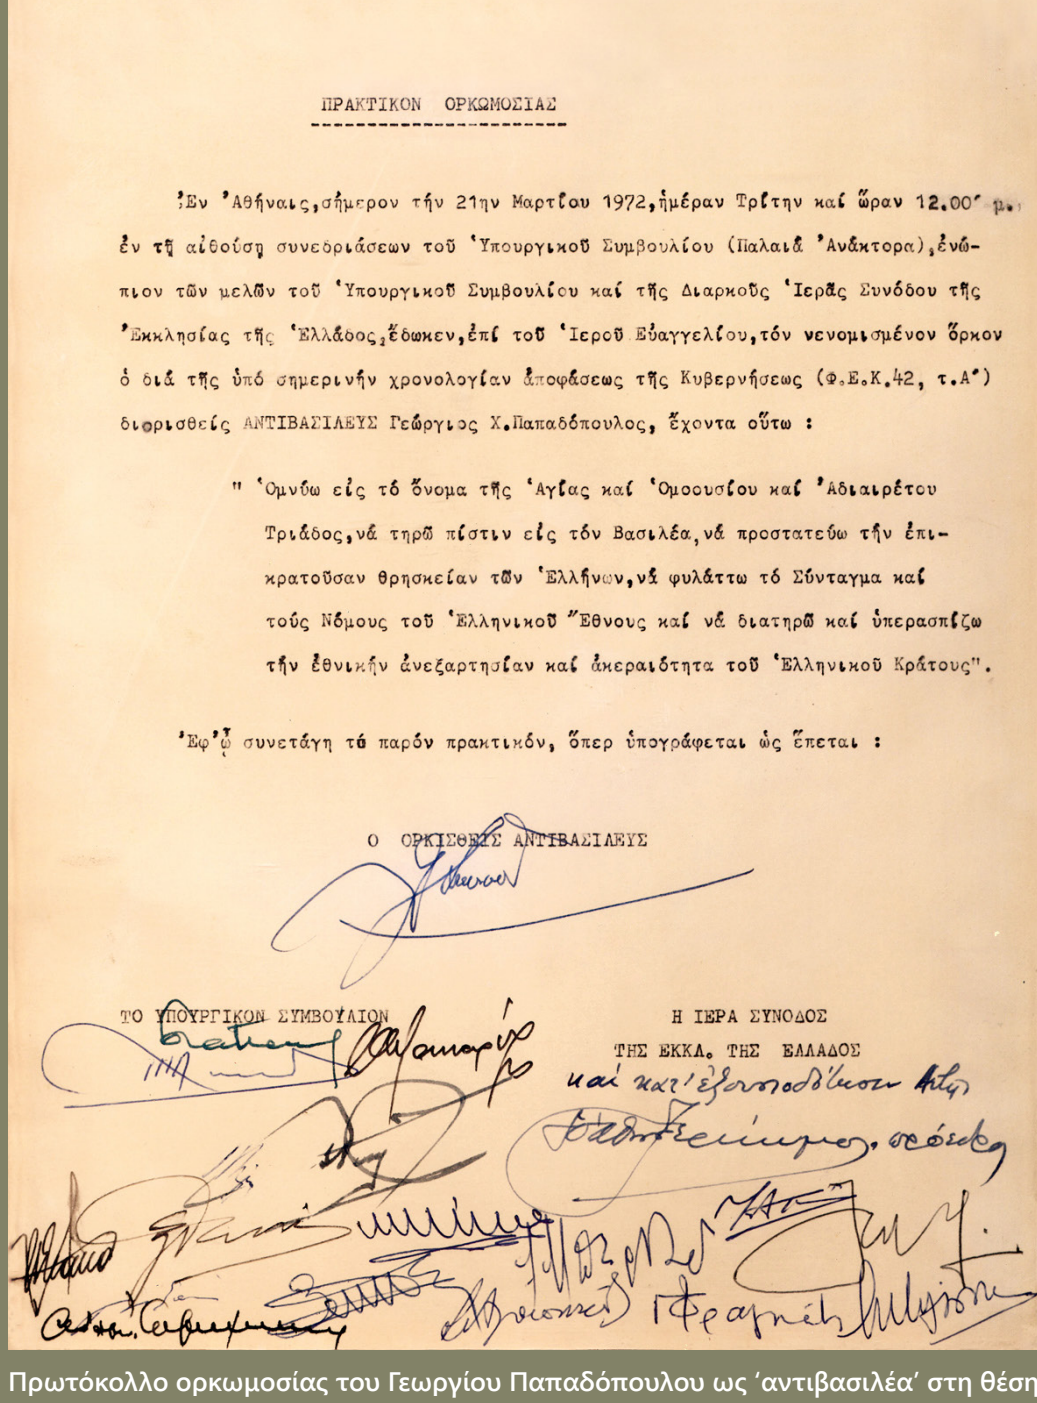 ΠΡΑΚΤΙΚΟΝ ΟΡΚΩΜΟΣΙΑΣ
Ἐν Ἀθήναις,σήμερον τήν 21ην Μαρτίου 1972,ἡμέραν Τρίτην καί ὥραν 12.00΄ μ.
ἐν τῇ αἰθούσῃ συνεδριάσεων τοῦ Ὑπουργικοῦ Συμβουλίου (Παλαιά Ἀνάκτορα),ἐνώ-
πιον τῶν μελῶν τοῦ Ὑπουργικοῦ Συμβουλίου καί τῆς Διαρκοῦς Ἱερᾶς Συνόδου τῆς
Ἐκκλησίας τῆς Ἑλλάδος,ἔδωκεν,ἐπί τοῦ Ἱεροῦ Εὐαγγελίου,τόν νενομισμένον ὅρκον
ὁ διά τῆς ὑπό σημερινήν χρονολογίαν ἀποφάσεως τῆς Κυβερνήσεως (Φ.Ε.Κ.42, τ.Α΄)
διορισθείς ΑΝΤΙΒΑΣΙΛΕΥΣ Γεώργιος Χ.Παπαδόπουλος, ἔχοντα οὕτω :
" Ὀμνύω εἰς τό ὄνομα τῆς Ἁγίας καί Ὁμοουσίου καί Ἀδιαιρέτου
Τριάδος,νά τηρῶ πίστιν εἰς τόν Βασιλέα,νά προστατεύω τήν ἐπι-
κρατοῦσαν θρησκείαν τῶν Ἑλλήνων,νά φυλάττω τό Σύνταγμα καί
τούς Νόμους τοῦ Ἑλληνικοῦ Ἔθνους καί νά διατηρῶ καί ὑπερασπίζω
τήν ἐθνικήν ἀνεξαρτησίαν καί ἀκεραιότητα τοῦ Ἑλληνικοῦ Κράτους".
Ἐφ'ᾧ συνετάγη τό παρόν πρακτικόν, ὅπερ ὑπογράφεται ὡς ἕπεται :
Ο ΟΡΚΙΣΘΕΙΣ ΑΝΤΙΒΑΣΙΛΕΥΣ
ΤΟ ΥΠΟΥΡΓΙΚΟΝ ΣΥΜΒΟΥΛΙΟΝ
Η ΙΕΡΑ ΣΥΝΟΔΟΣ
ΤΗΣ ΕΚΚΛ. ΤΗΣ ΕΛΛΑΔΟΣ
καί κατ' ἐξουσιοδότησιν
Πρωτόκολλο ορκωμοσίας του Γεωργίου Παπαδόπουλου ως ‘αντιβασιλέα’ στη θέση